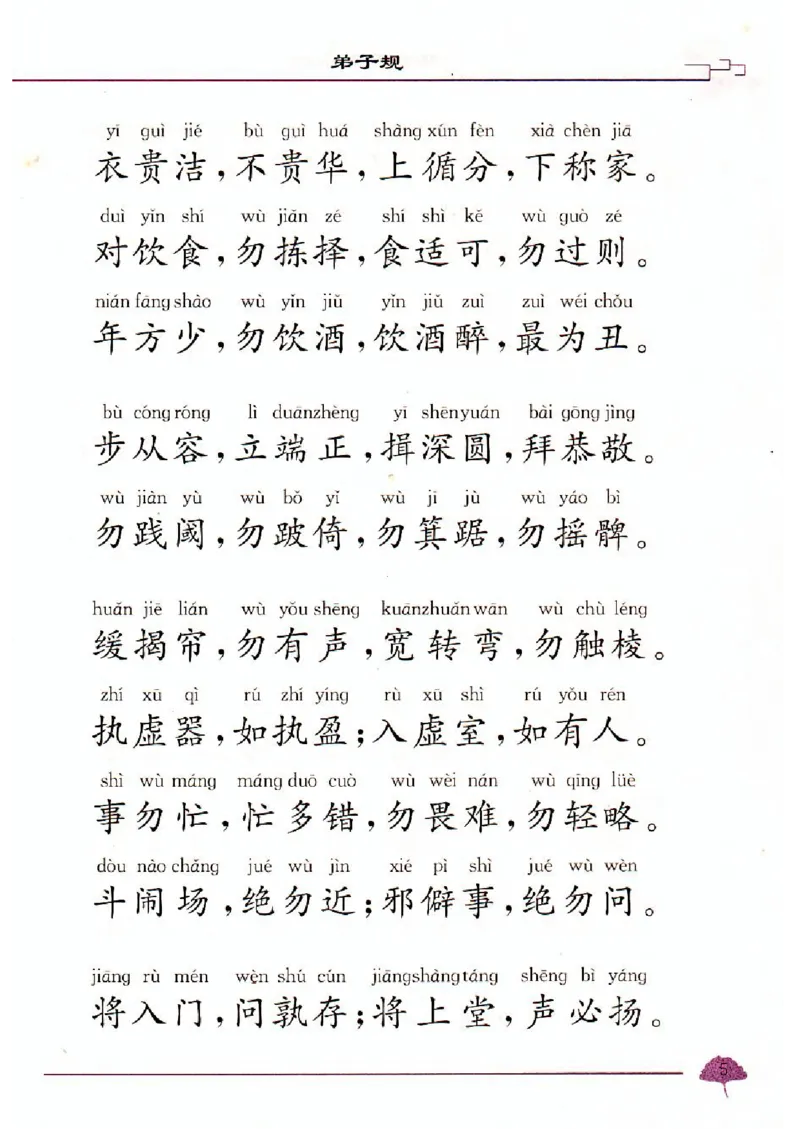 弟子规
yī guì jié bù guì huá shàng xún fèn xià chèn jiā
衣贵洁，不贵华，上循分，下称家。
duì yǐn shí wù jiǎn zé shí shì kě wù guò zé
对饮食，勿拣择，食适可，勿过则。
nián fāng shào wù yǐn jiǔ yǐn jiǔ zuì zuì wéi chǒu
年方少，勿饮酒，饮酒醉，最为丑。
bù cóng róng lì duān zhèng yī shēn yuán bài gōng jìng
步从容，立端正，揖深圆，拜恭敬。
wù jiàn yù wù bǒ yǐ wù jī jù wù yáo bì
勿践阈，勿跛倚，勿箕踞，勿摇髀。
huǎn jiē lián wù yǒu shēng kuān zhuǎn wān wù chù léng
缓揭帘，勿有声，宽转弯，勿触棱。
zhí xū qì rú zhí yíng rù xū shì rú yǒu rén
执虚器，如执盈；入虚室，如有人。
shì wù máng máng duō cuò wù wèi nán wù qīng lüè
事勿忙，忙多错，勿畏难，勿轻略。
dòu nào chǎng jué wù jìn xié pì shì jué wù wèn
斗闹场，绝勿近；邪僻事，绝勿问。
jiāng rù mén wèn shú cún jiāng shàng táng shēng bì yáng
将入门，问孰存；将上堂，声必扬。
5